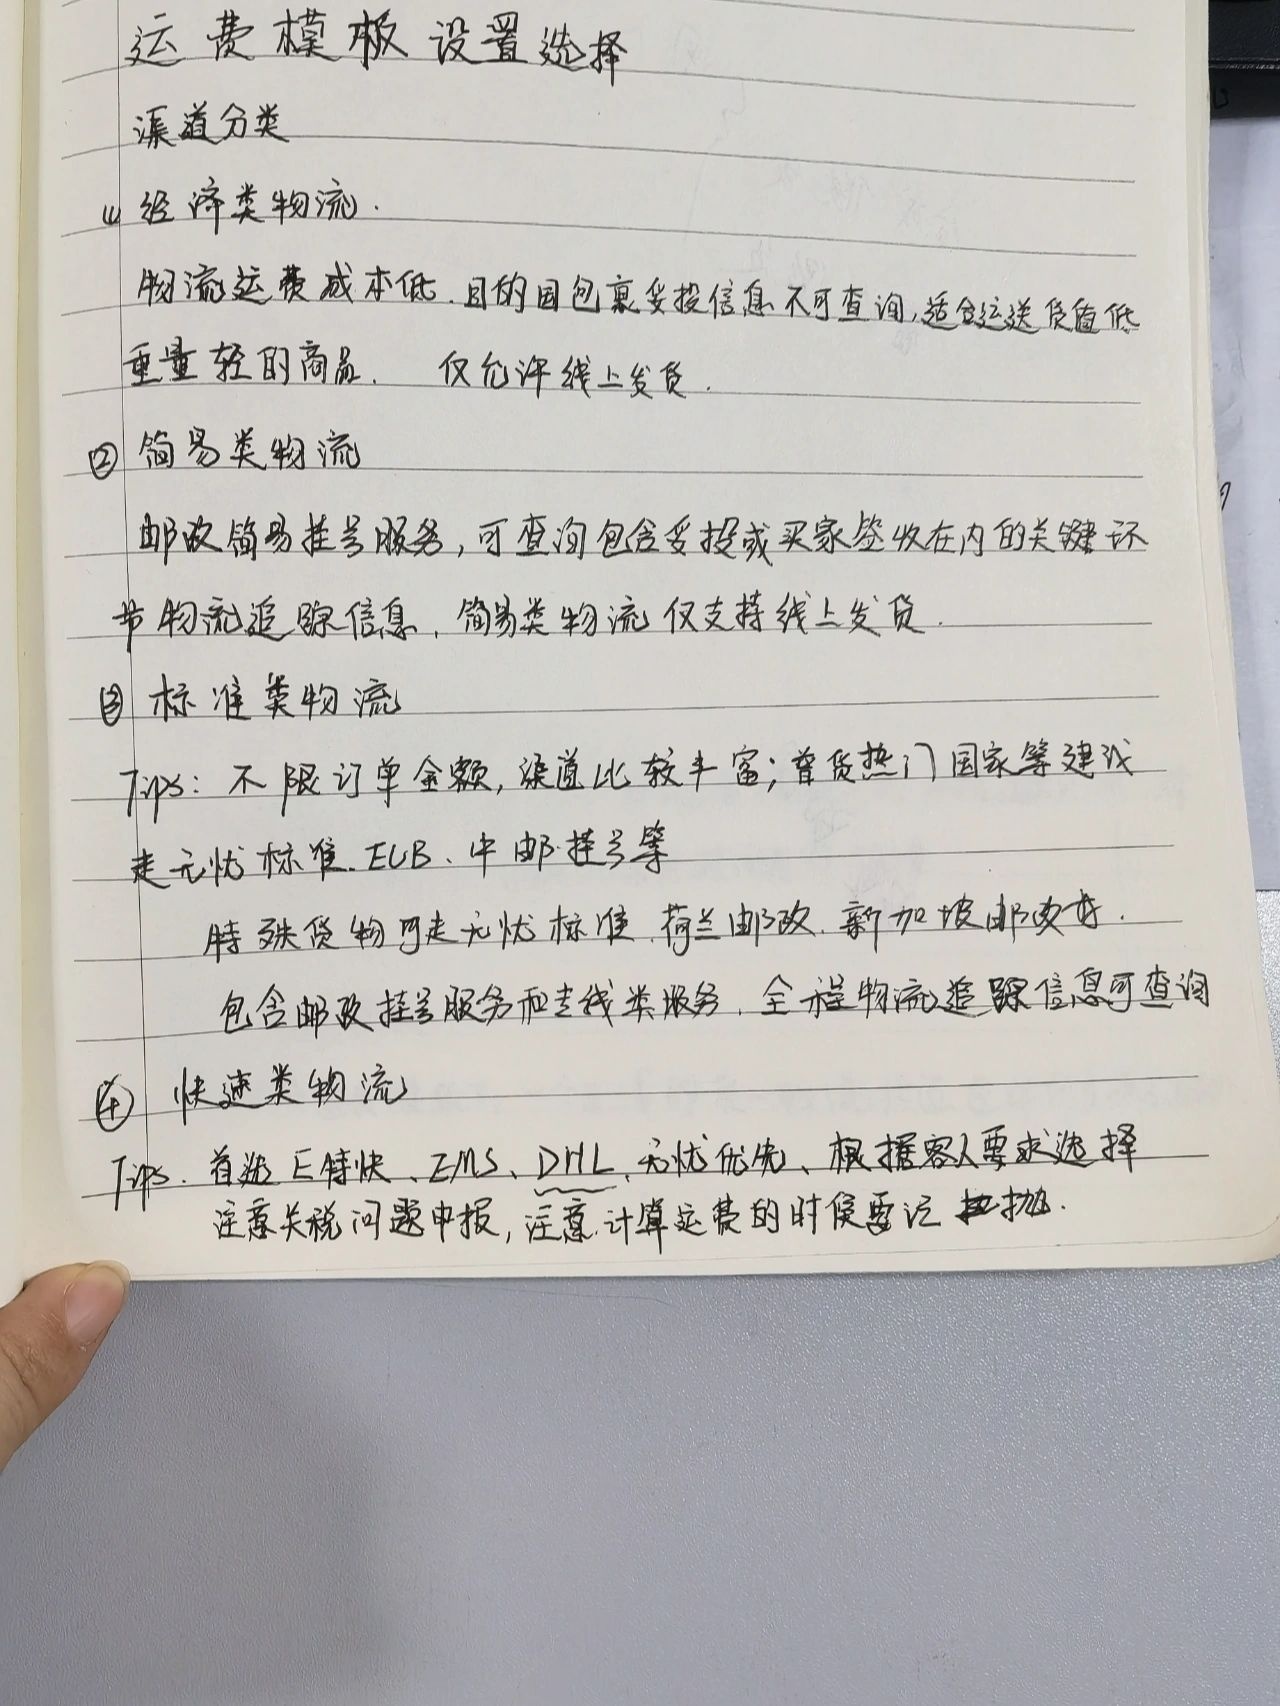 运费模板设置选择
渠道分类
(1) 经济类物流.
物流运费成本低.目的国包裹妥投信息不可查询,适合运送货值低
重量轻的商品. 仅允许线上发货.
② 简易类物流
邮政简易挂号服务,可查询包含妥投或买家签收在内的关键环
节物流追踪信息,简易类物流仅支持线上发货.
③ 标准类物流
Tips: 不限订单金额,渠道比较丰富;普货热门国家等建议
走无忧标准、EUB、中邮挂号等
特殊货物可走无忧标准、荷兰邮政、新加坡邮政
包含邮政挂号服务和专线类服务,全程物流追踪信息可查询
④ 快速类物流
Tips. 首选E特快、EMS、DHL、无忧优先、根据客人要求选择
注意关税问题申报,注意计算运费的时候要记抛.